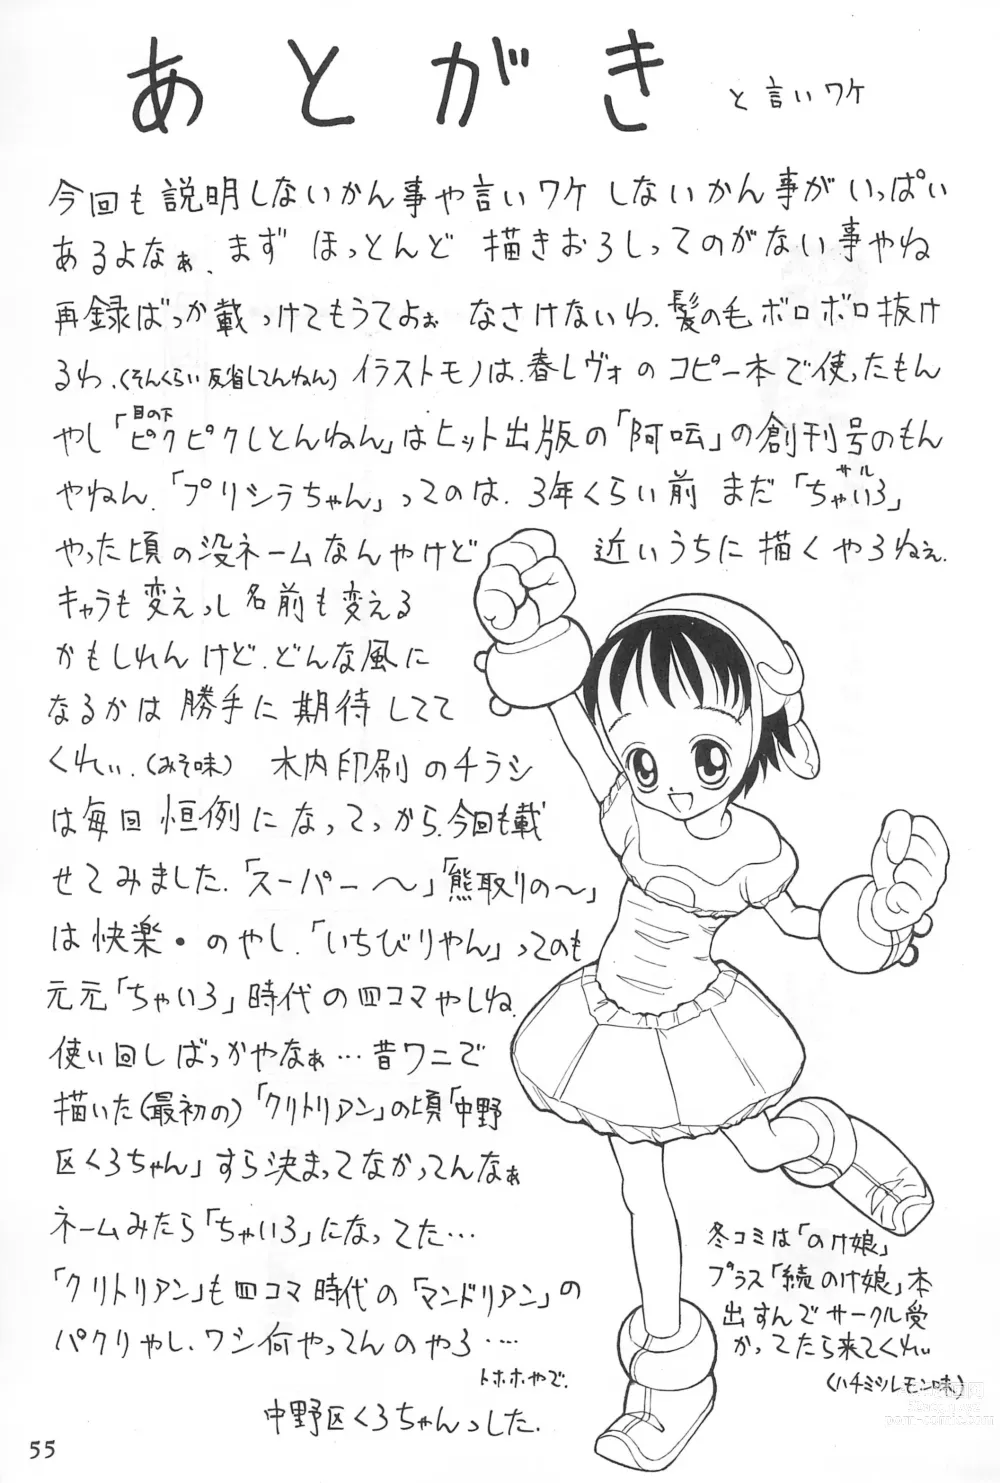 あとがき と言いワケ
今回も説明しないかん事や言いワケしないかん事がいっぱい
あるよなぁ、まず ほっとんど 描きおろしってのがない事やね
再録ばっか載っけてもうてよぉ なさけないわ、髪の毛ボロボロ抜け
るわ、(そんくらい反省してんねん) イラストモノは、春レヴォのコピー本で使ったもん
やし「目の下ピクピクしとんねん」はヒット出版の「阿吽」の創刊号のもん
やねん、「プリシラちゃん」ってのは、3年くらい前 まだ「ちゃいろ」サル
やった頃の没ネームなんやけど 近いうちに描くやろねぇ、
キャラも変えっし名前も変える
かもしれんけど、どんな風に
なるかは勝手に期待してて
くれぃ、(みそ味) 木内印刷のチラシ
は毎回恒例になってっから、今回も載
せてみました、「スーパー〜」「熊取りの〜」
は快楽・のやし、「いちびりやん」ってのも
元元「ちゃいろ」時代の四コマやしね
使い回しばっかやなぁ…昔ワニで
描いた(最初の)「クリトリアン」の頃「中野
区くろちゃん」すら決まってなかってんなぁ
ネームみたら「ちゃいろ」になってた…
「クリトリアン」も四コマ時代の「マンドリアン」の
パクリやし、ワシ何やってんのやろ……
トホホやで、
中野区くろちゃんっした、
冬コミは「のけ娘」
プラス「続のけ娘」本
出すんでサークル受
かってたら来てくれぃ
(ハチミツレモン味)
55